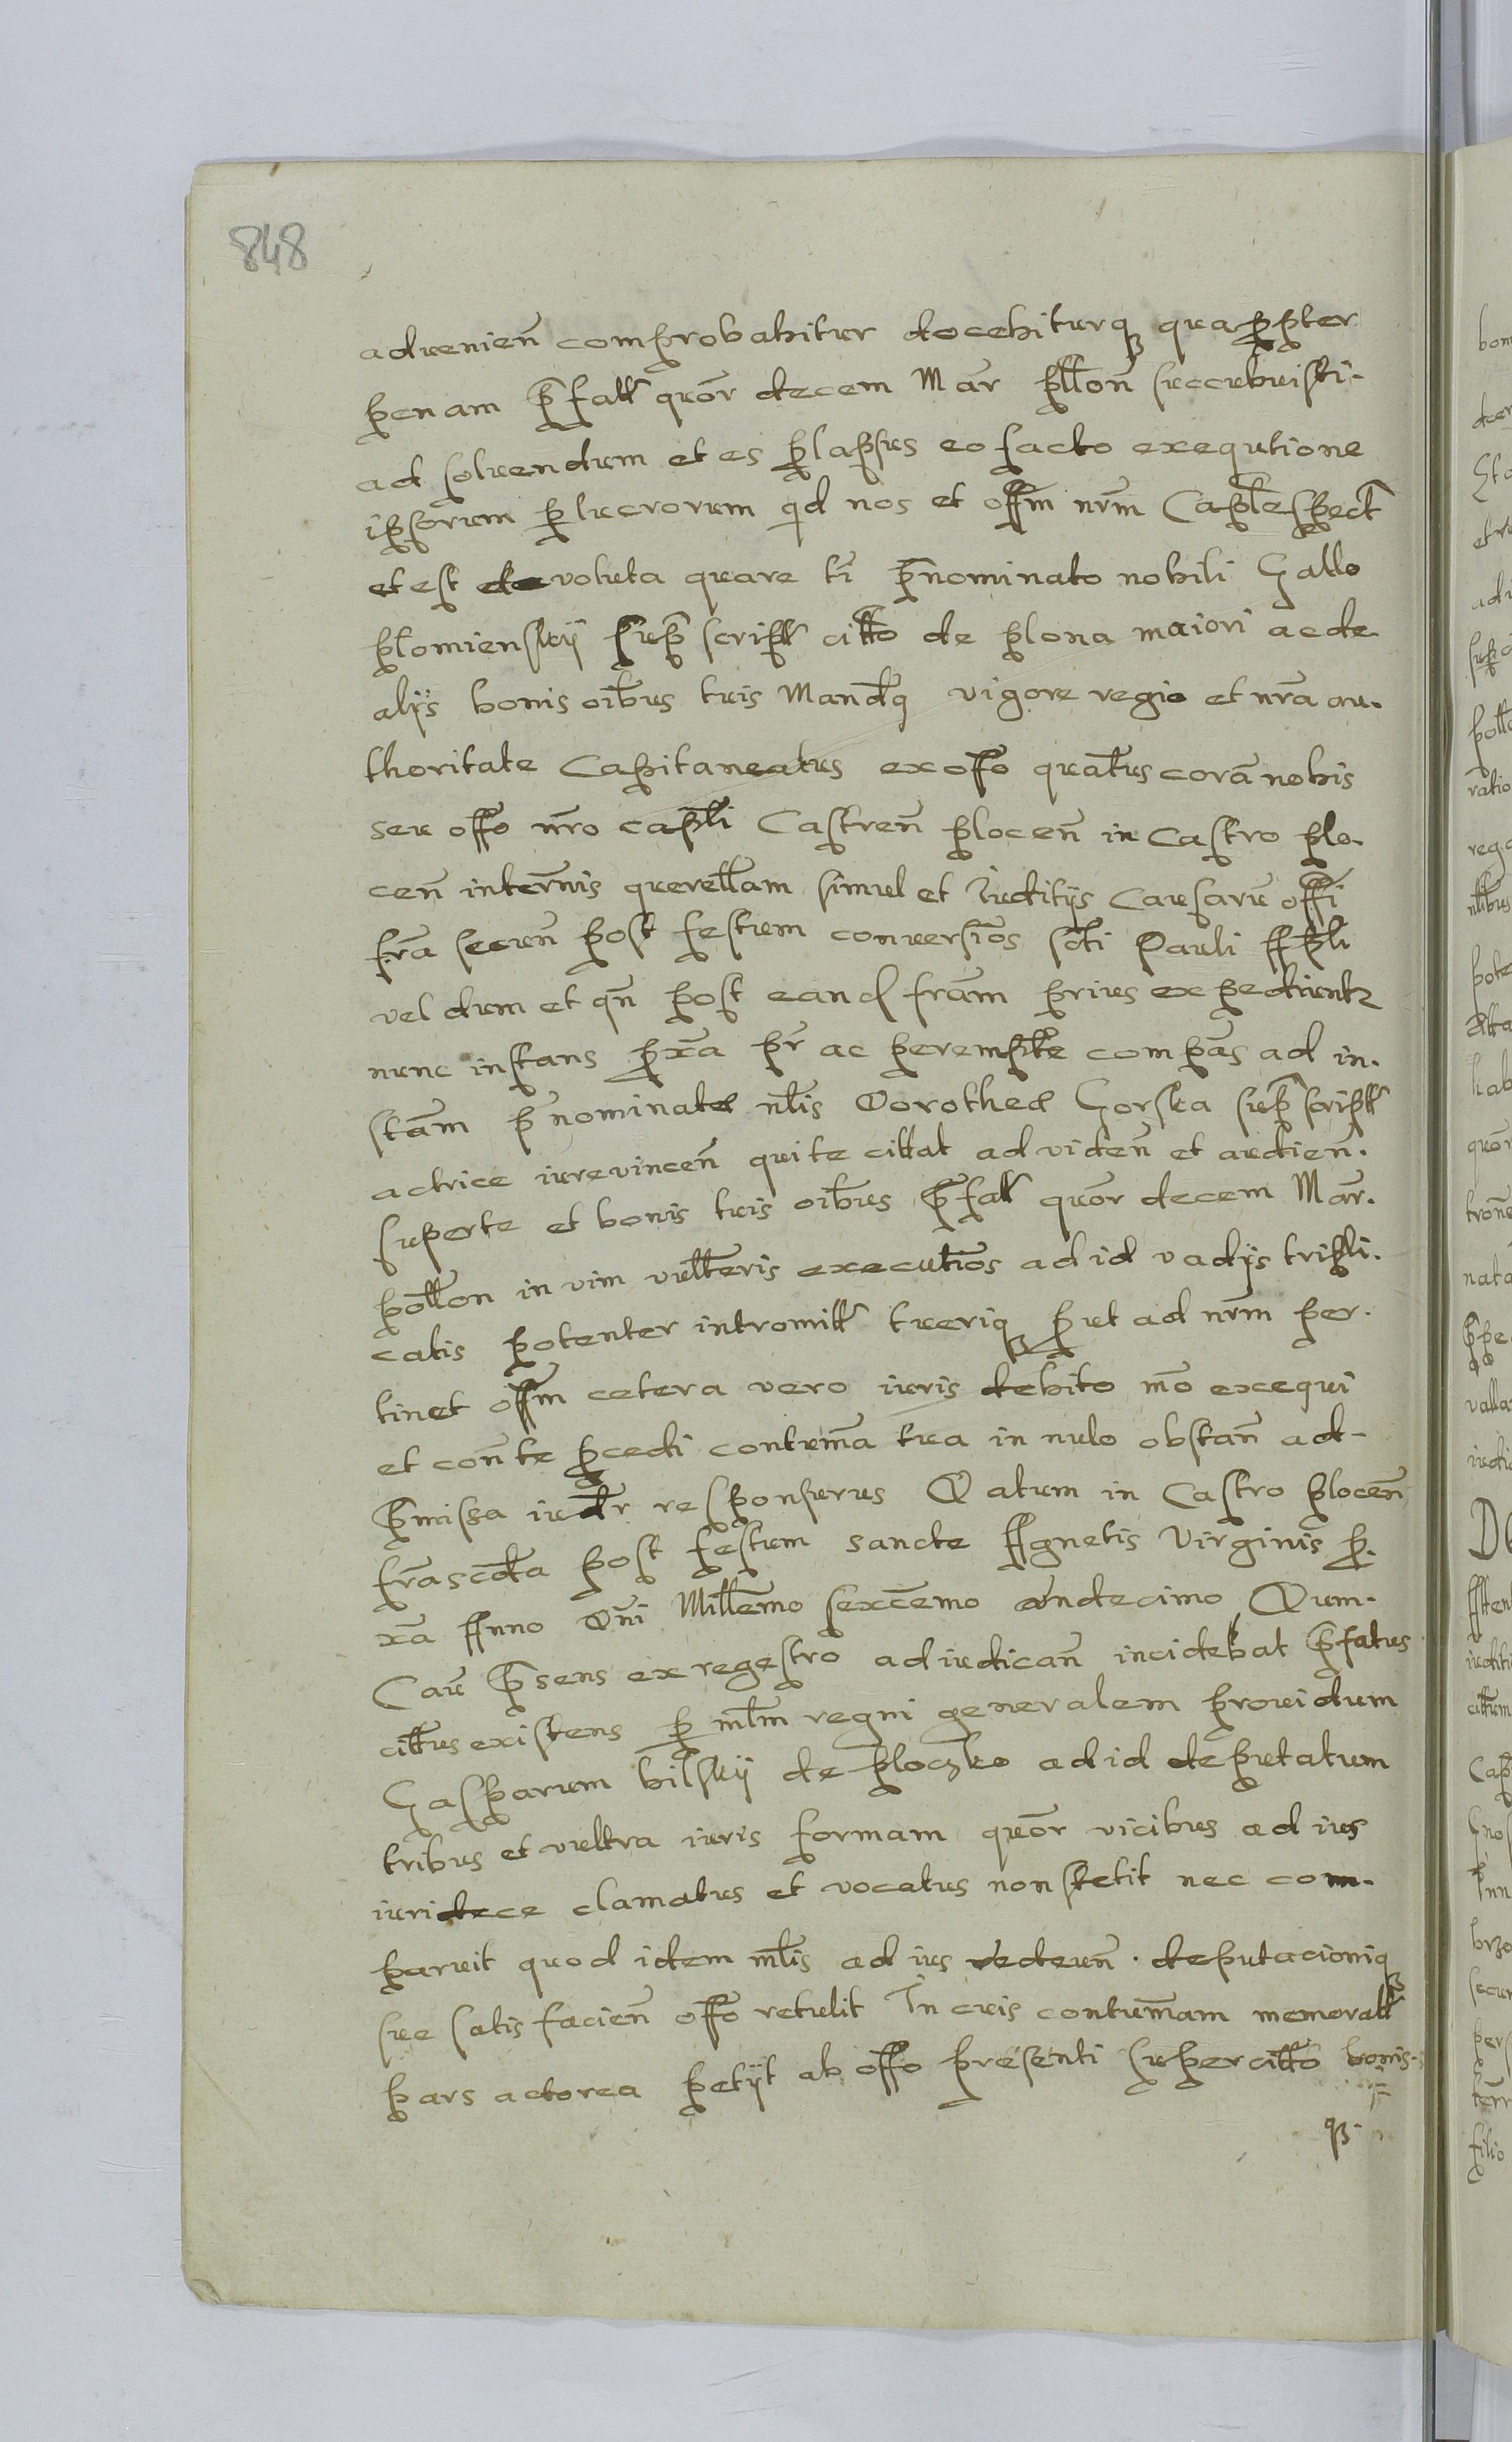 848
aduenien̄ comprobabitur docebiturq quapropter
penam p̄fatt quōr decem Mar̄ pllon̄ succubuisti-
ad soluendum et es plapsus eo facto exequtione
ipsorum plucrorum qd nos et offm nr̄m Captlespect
et est devoluta quare tī p̄nominato nobili Gallo
plomienskÿ sup̄ script citto de plona maiori ac de
alÿs bonis oibus tuis Mandq vigore regio et nr̄a au.
thoritate Capitaneatus ex offo quatus corā nobis
seu offo nr̄o captli Castren̄ plocen̄ in Castro plo.
cen̄ intermis querellam simul et Iuditÿs Causarū offi
fr̄a secun̄ post festum conuersiōs scti Pauli Appli
vel dum et qn̄ post eand fr̄am prius expediunt
nunc instans pxa pr̄ ac peremptte compās ad in.
stam̄ p̄nominate nlis Dorothea Gorska sup̄script
actrice iurevincen̄ qui te cittat ad viden̄ et audien̄.
superte et bonis tuis oibus p̄fatt quōr decem Mar̄.
pollon in vim vltteris executiōs ad id vadÿs tripli.
catis potenter intromitt tueriq put ad nr̄m per.
tinet offm cetera vero iuris debito mō exequi
et con̄ te pcedi contuma tua in nulo obstan̄ ad-
p̄missa iudr responsurus Datum in Castro plocen̄
fr̄a scda post festum sancte Agnetis Virginis p.
xa Anno Dn̄i Millemo sexcemo undecimo Qum.
Cau p̄sens ex regestro adiudican̄ incidebat p̄fatus
cittus existens p mlm regni generalem prouidum
Gasparum bilskÿ de ploczko ad id deputatum
tribus et vultra iuris formam quōr vicibus ad ius
iuridece clamatus et vocatus non stetit nec com.
paruit quod idem mlis ad ius redeun̄. deputacioniq
sue satisfacien̄ offo retulit In cuis contumam memoratt
pars actorea petÿt ab offo presenti super citto bonis
q.